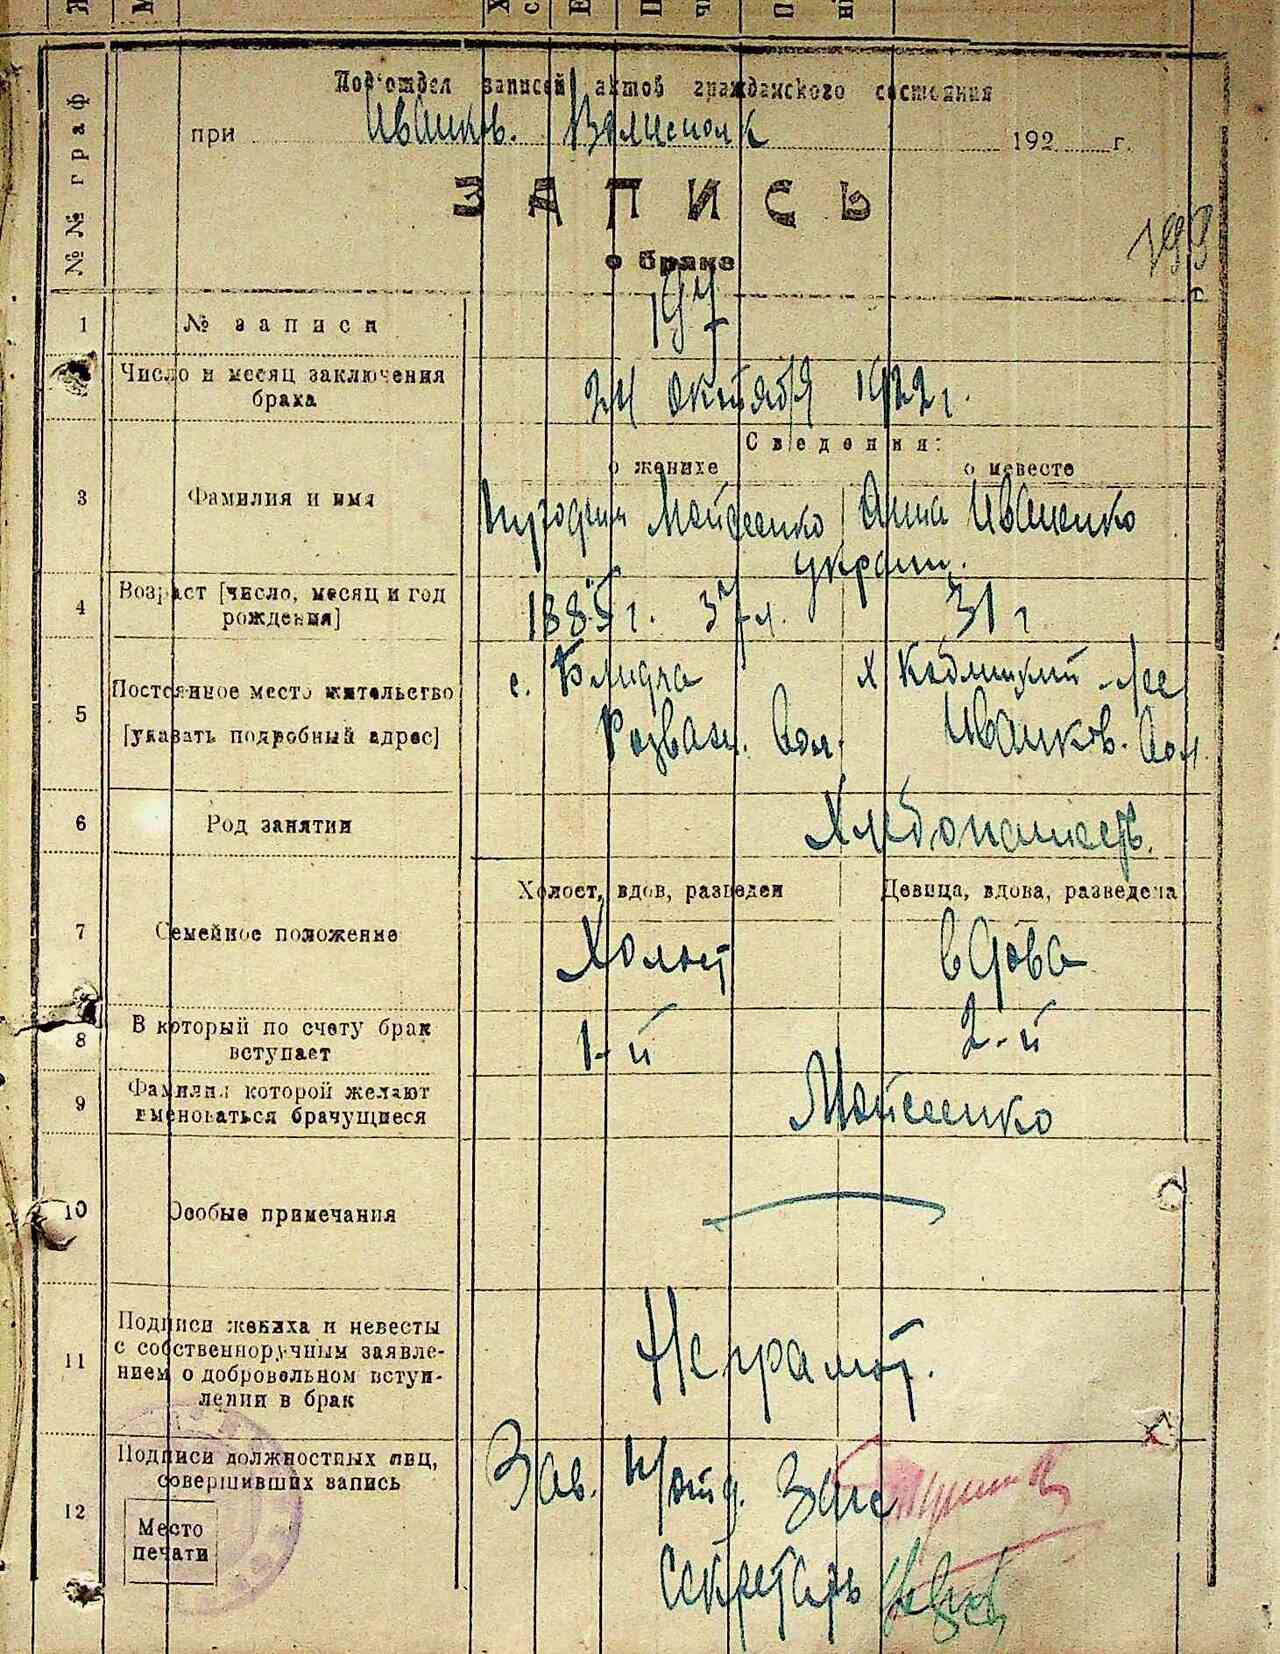 №№ граф
Под'отдел записей актов гражданского состояния
при Иванков. Волисполк 192 г.
ЗАПИСЬ
о браке
193
1 № записи
197
2 Число и месяц заключения
брака
24 октября 1922 г.
Сведения:
о женихе о невесте
3 Фамилия и имя
Мойсеенко Анна Иваненко
украин.
4 Возраст [число, месяц и год
рождения]
1885 г. 37 л. 31 г
5 Постоянное место жительство
[указать подробный адрес]
с. Блидча х
Розваж. вол. Иванков. вол.
6 Род занятий
Хлебопашест.
Холост, вдов, разведен Девица, вдова, разведена
7 Семейное положение
Холост вдова
8 В который по счету брак
вступает
1-й 2-й
9 Фамилия которой желают
именоваться брачущиеся
Мойсеенко
10 Особые примечания
11 Подписи жениха и невесты
с собственноручным заявле-
нием о добровольном вступ-
лении в брак
Неграмот.
12 Подписи должностных лиц,
совершивших запись
Место
печати
Зав. п/отд. Загс
Секретарь